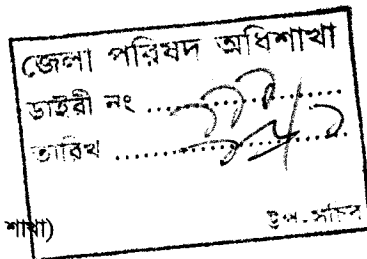 জেলা পরিষদ অধিশাখা
ডাইরী নং ..................
তারিখ ..................
শাখা)
উপ-সচিব